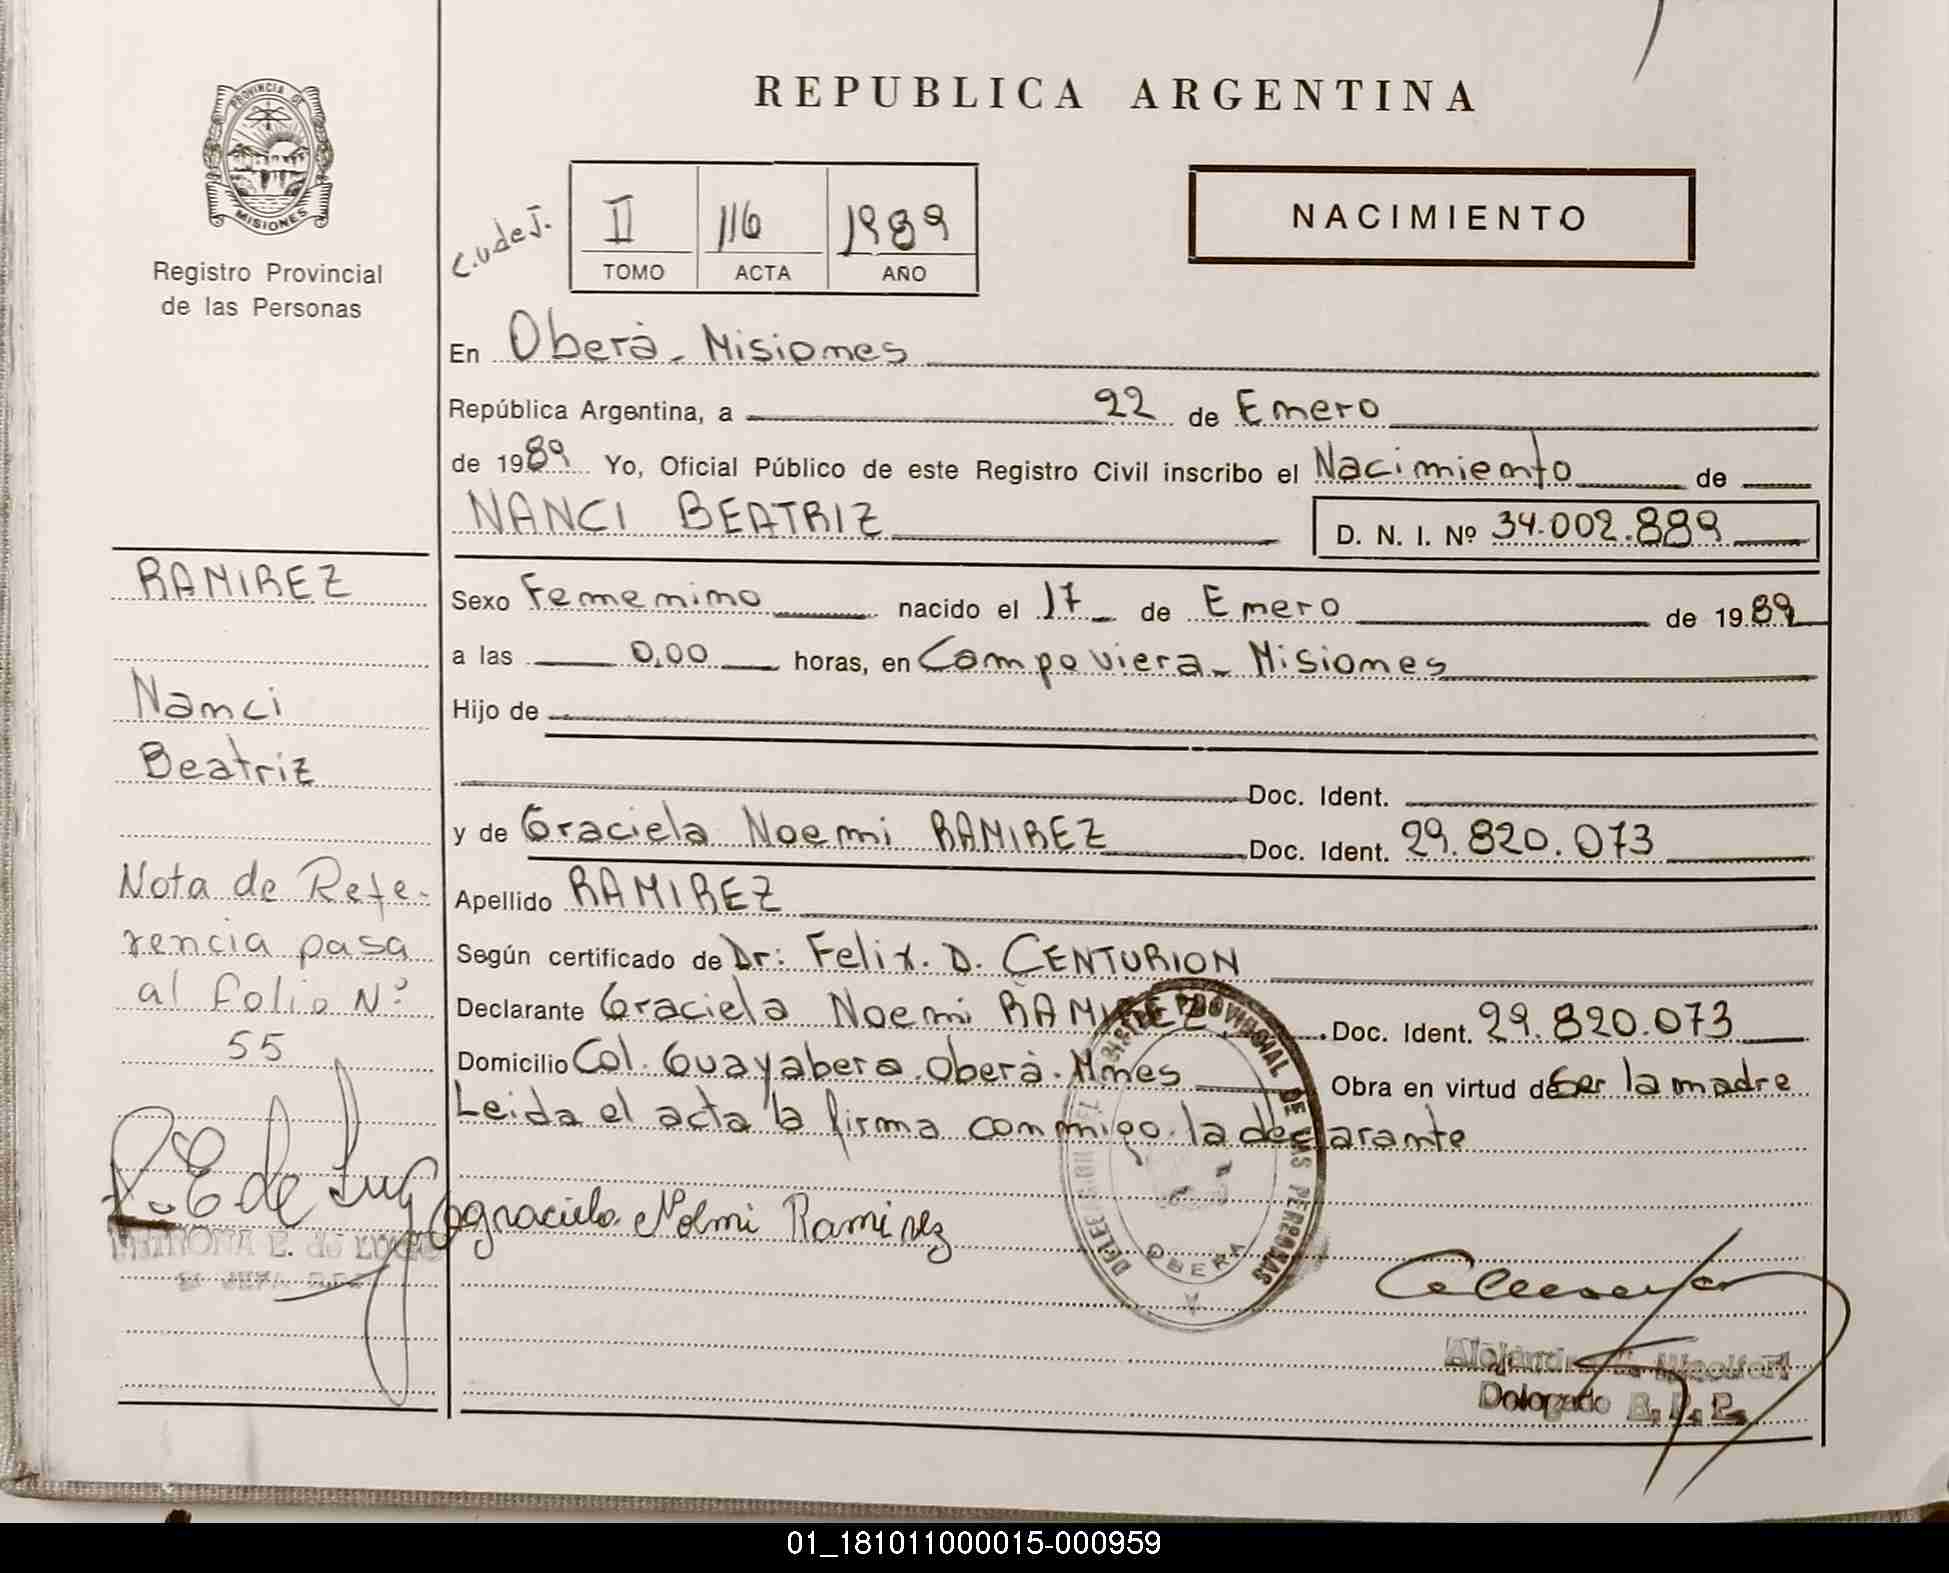 PROVINCIA DE
MISIONES
Registro Provincial
de las Personas
REPUBLICA ARGENTINA
NACIMIENTO
C.UdeJ.
II 116 1989
TOMO ACTA AÑO
En Oberà - Misiones
República Argentina, a 22 de Enero
de 1989 Yo, Oficial Público de este Registro Civil inscribo el Nacimiento de
NANCI BEATRIZ D. N. I. Nº 34.002.889
RAMIREZ
Nanci
Beatriz
Nota de Refe-
rencia pasa
al folio Nº
55
P. E de Lugo
PETRONA E. de LUGO
Sexo Femenino nacido el 17 de Enero de 1989
a las 0,00 horas, en Campo viera - Misiones
Hijo de
Doc. Ident.
y de Graciela Noemi RAMIREZ Doc. Ident. 29.820.073
Apellido RAMIREZ
Según certificado de Dr: Felix. D. CENTURION
Declarante Graciela Noemi RAMIREZ Doc. Ident. 29.820.073
Domicilio Col. Guayabera. Oberà. Mnes Obra en virtud de Ser la madre
Leida el acta la firma conmigo la declarante
graciela Noemi Ramirez
PROVINCIAL DE LAS PERSONAS
OBERA
Delegado R. P. P.
01_181011000015-000959